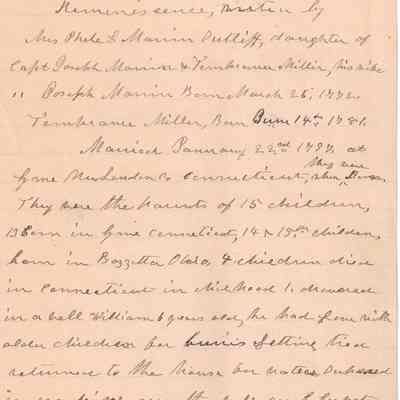 Reminessence, written by
Mrs Phebe L Marvin Sutliff, daughter of
Capt Joseph Marvin & Temperance Miller, his wife
" Joseph Marvin Born March 25, 1772.
Temperance Miller, Born June 14th 1781.
Married January 22nd 1797, at
they were
Lyme New London Co Connecticut, when Born.
They were the Parents of 15 children,
13 Born in Lyme Conneticut, 14 & 15th children
born in Bazzetta Ohio, 4 children died
in Connecticut in childhood 1. drowned
in a well William 6 years old, he had gone with
older children for setting hens
returned to the house for